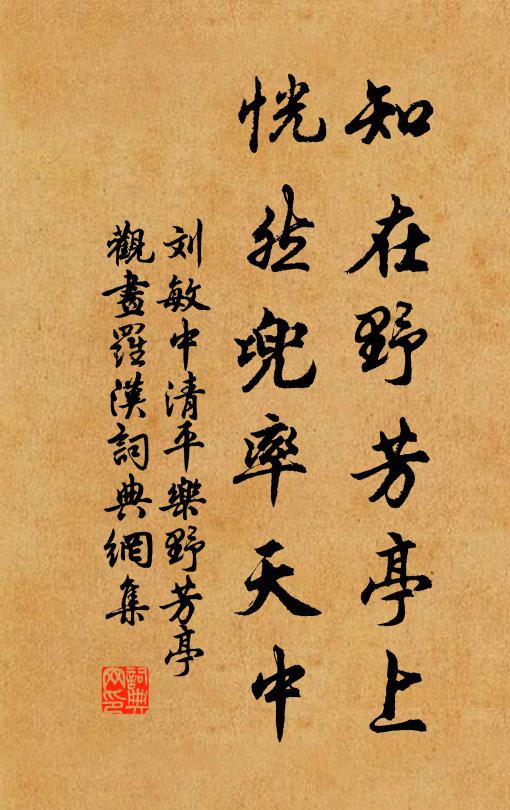 知在野芳亭上
恍然兜率天中
刘敏中清平樂野芳亭
觀畫羅漢詞典網集
詞典网印